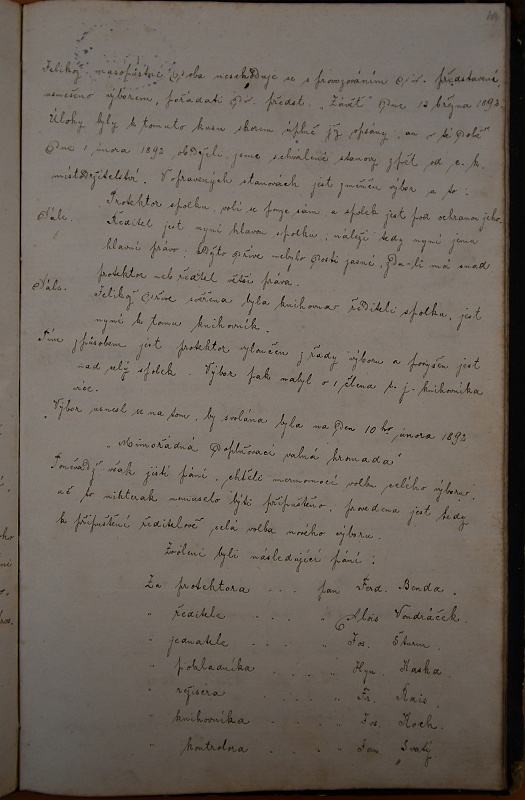 Jelikož masopustní doba neshoduje se s provozováním div. představení,
usneseno výborem, pořádati div. předst. "Závěť" dne 13 března 1892.
Úlohy byly k tomuto kusu skorem úplně již opsány, an v té době
Dne 1 února 1892 obdrželi jsme schválené stanovy zpět od c. k.
místodržitelství. V opravených stanovách jest změněn výbor a to:
Protektor spolku, volí se pouze sám a spolek jest pod ochranou jeho.
Dále. Ředitel jest nyní hlavou spolku; náleží tedy nyní jemu
hlavní právo; dříve nebylo dosti jasné, má snad
protektor neb ředitel větší práva.
Dále. Jelikož dříve svěřena byla knihovna řediteli spolku, jest
nyní k tomu knihovník.
Tím způsobem jest protektor vyloučen z řady výboru a povýšen jest
nad celý spolek. Výbor pak nabyl o 1 člena t. j. knihovníka
více.
Výbor usnesl se na tom, by svolána byla na den 10ho února 1892
"Mimořádná doplňovací valná hromada"
Poněvadž však jistí páni, chtěli mermomocí volbu celého výboru,
což to nikterak nemuselo býti připuštěno, provedena jest tedy
k připuštění ředitelově celá volba nového výboru.
Zvoleni byli následující páni:
Za protektora . . . pan Ferd. Benda.
" ředitele . . . " Alois Vondráček.
" jednatele . . . " Jos. Šturm.
" pokladníka . . . " Hyn. Kaska.
" režiséra . . . " Fr. Kais.
" knihovníka . . . " Jos. Koch.
" kontrolora . . . " Jan Svatý